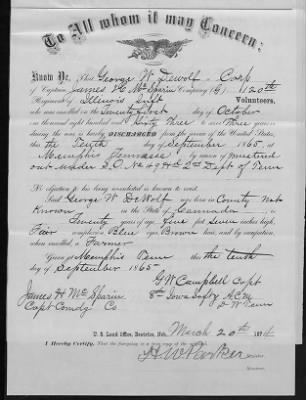 To All whom it may Concern:
Know Ye, That George W. Dewolf a Corp
of Captain James H McSparin Company (G) 120th
Regiment of Illinois Inft Volunteers,
who was enrolled on the Twenty first day of October
one thousand eight hundred and Sixty Three to serve Three years or
during the war, is hereby DISCHARGED from the service of the United States,
this the Tenth day of September 1865, at
Memphis Tennessee by reason of mustered
out under S.O. No 49 Hd 2nd Dept of Tenn
No objection to his being re-enlisted is known to exist.
Said George W. DeWolf was born in County Not
Known in the State of Cannada, is
Twenty years of age, Five feet Seven inches high,
Fair complexion, Blue eyes, Brown hair, and by occupation,
when enrolled, a Farmer
Given at Memphis Tenn this the tenth
day of September 1865.
G W Campbell Capt
James H McSparin 8th Iowa Infty A.C.M.
Capt Comdg Co D W Tenn
U. S. Land Office, Beatrice, Neb. March 20th 1874
I Hereby Certify, That the foregoing is a true copy of the original
H W Parker